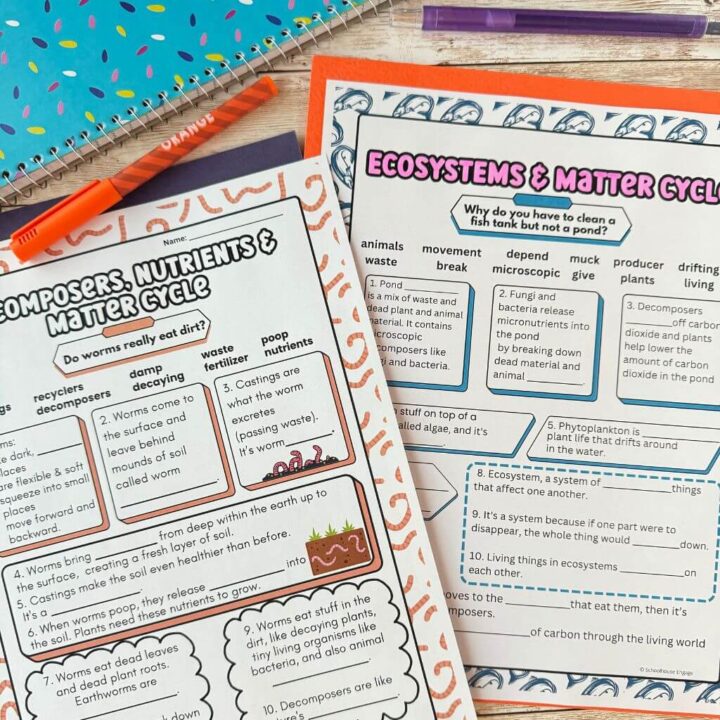 ORANGE
Name:
COMPOSERS, NUTRIENTS &
MATTER CYCLE
Do worms really eat dirt?
recyclers
damp
waste
poop
decomposers
decaying
fertilizer
nutrients
dark,
places
are flexible & soft
squeeze into small
places
move forward and
backward.
2. Worms come to
the surface and
leave behind
mounds of soil
called worm
3. Castings are
what the worm
excretes
(passing waste).
It's worm
4. Worms bring __________ from deep within the earth up to
the surface, creating a fresh layer of soil.
5. Castings make the soil even healthier than before.
It's a __________.
6. When worms poop, they release __________ into
the soil. Plants need these nutrients to grow.
7. Worms eat dead leaves
and dead plant roots.
Earthworms are
down
9. Worms eat stuff in the
dirt, like decaying plants,
tiny living organisms like
bacteria, and also animal
10. Decomposers are like
ECOSYSTEMS & MATTER CYCL
Why do you have to clean a
fish tank but not a pond?
animals movement depend muck producer drifting
waste break microscopic give plants living
1. Pond __________
is a mix of waste and
dead plant and animal
material. It contains
microscopic
decomposers like
fungi and bacteria.
2. Fungi and
bacteria release
micronutrients into
the pond
by breaking down
dead material and
animal __________.
3. Decomposers
__________off carbon
dioxide and plants
help lower the
amount of carbon
dioxide in the pond
stuff on top of a
called algae, and it's
5. Phytoplankton is __________
plant life that drifts around
in the water.
8. Ecosystem, a system of __________things
that affect one another.
9. It's a system because if one part were to
disappear, the whole thing would __________down.
10. Living things in ecosystems __________on
each other.
moves to the __________that eat them, then it's
__________of carbon through the living world
© Schoolhouse Engage